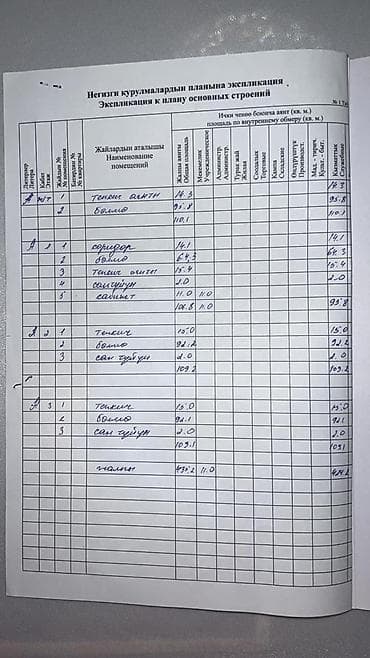 Негизги курулмалардын планына экспликация
Экспликация к плану основных строений
Ички ченөө боюнча аянт (кв. м.)
площадь по внутреннему обмеру (кв. м.)
Литерлер
Литера
Кабат
Этаж
Жайдын №
№ помещения
Батирдин №
№ квартиры
Жайлардын аталышы
Наименование
помещений
Жалпы аянты
Общая площадь
Мекемелик
Учрежденческие
Администр.
Администр.
Турак жай
Жилая
Соодалык
Торговые
Кампа
Складские
Өндүрүштүк
Производст.
Мад. - тирич.
Культ. - быт.
Кызматтык
Служебные
14.3
А п/п 1 14.3
2 бөлмө 95.8 95.8
110.1 110.1
А 1 1 коридор 14.1 14.1
2 бөлмө 64.3 64.3
3 15.4 15.4
4 сантүйүн 2.0 2.0
5 кабинет 11.0 11.0
106.8 11.0 95.8
А 2 1 тепкич 15.0 15.0
2 бөлмө 92.2 92.2
3 сан түйүн 2.0 2.0
109.2 109.2
А 3 1 тепкич 15.0 15.0
2 бөлмө 92.1 92.1
3 сан түйүн 2.0 2.0
109.1 109.1
жалпы 435.2 11.0 424.2